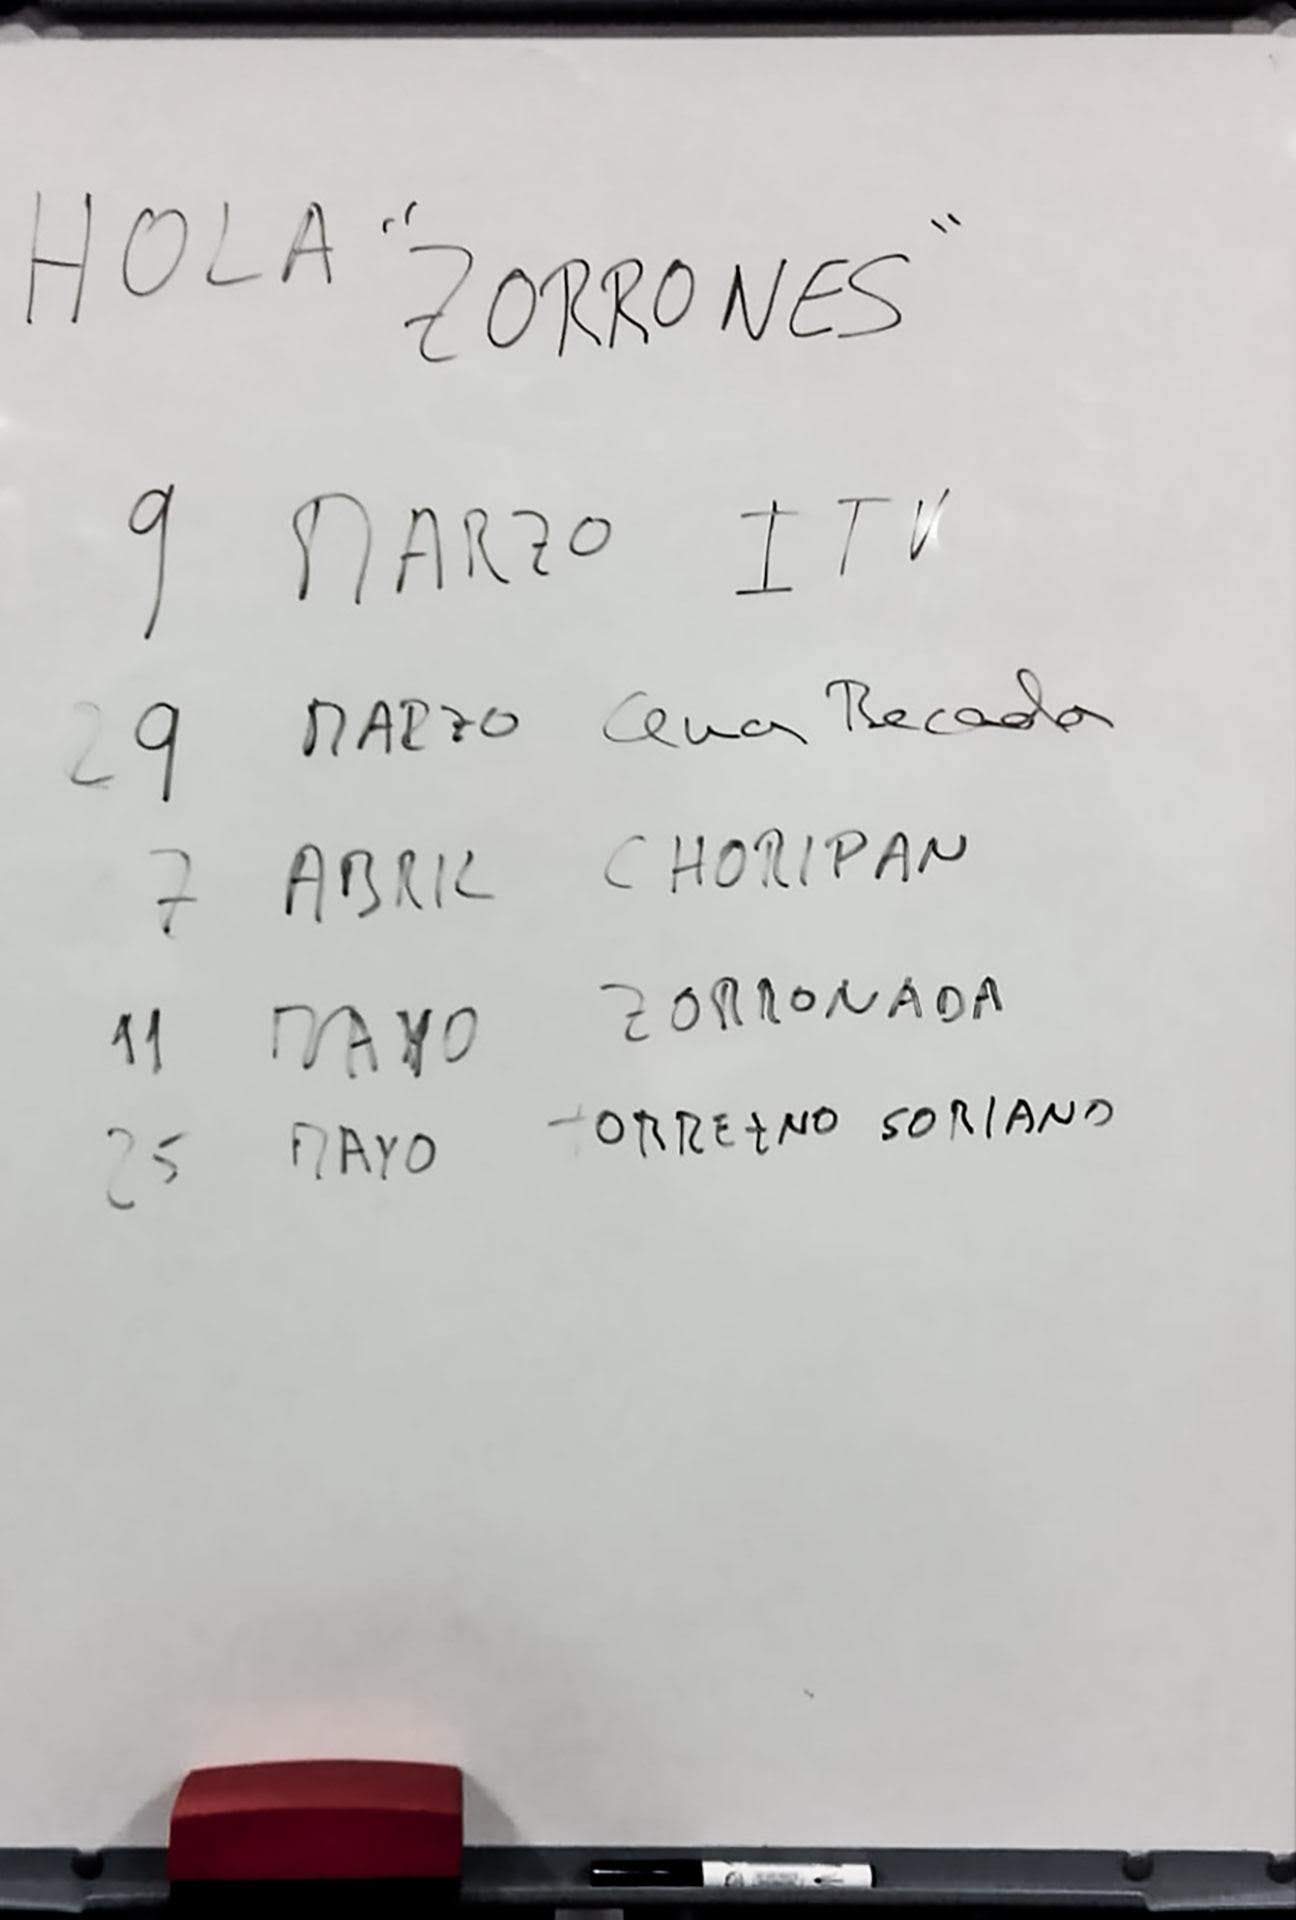 HOLA "ZORRONES"
9 MARZO ITV
29 MARZO Cena Becada
7 ABRIL CHORIPAN
11 MAYO ZORRONADA
25 MAYO TORREZNO SORIANO